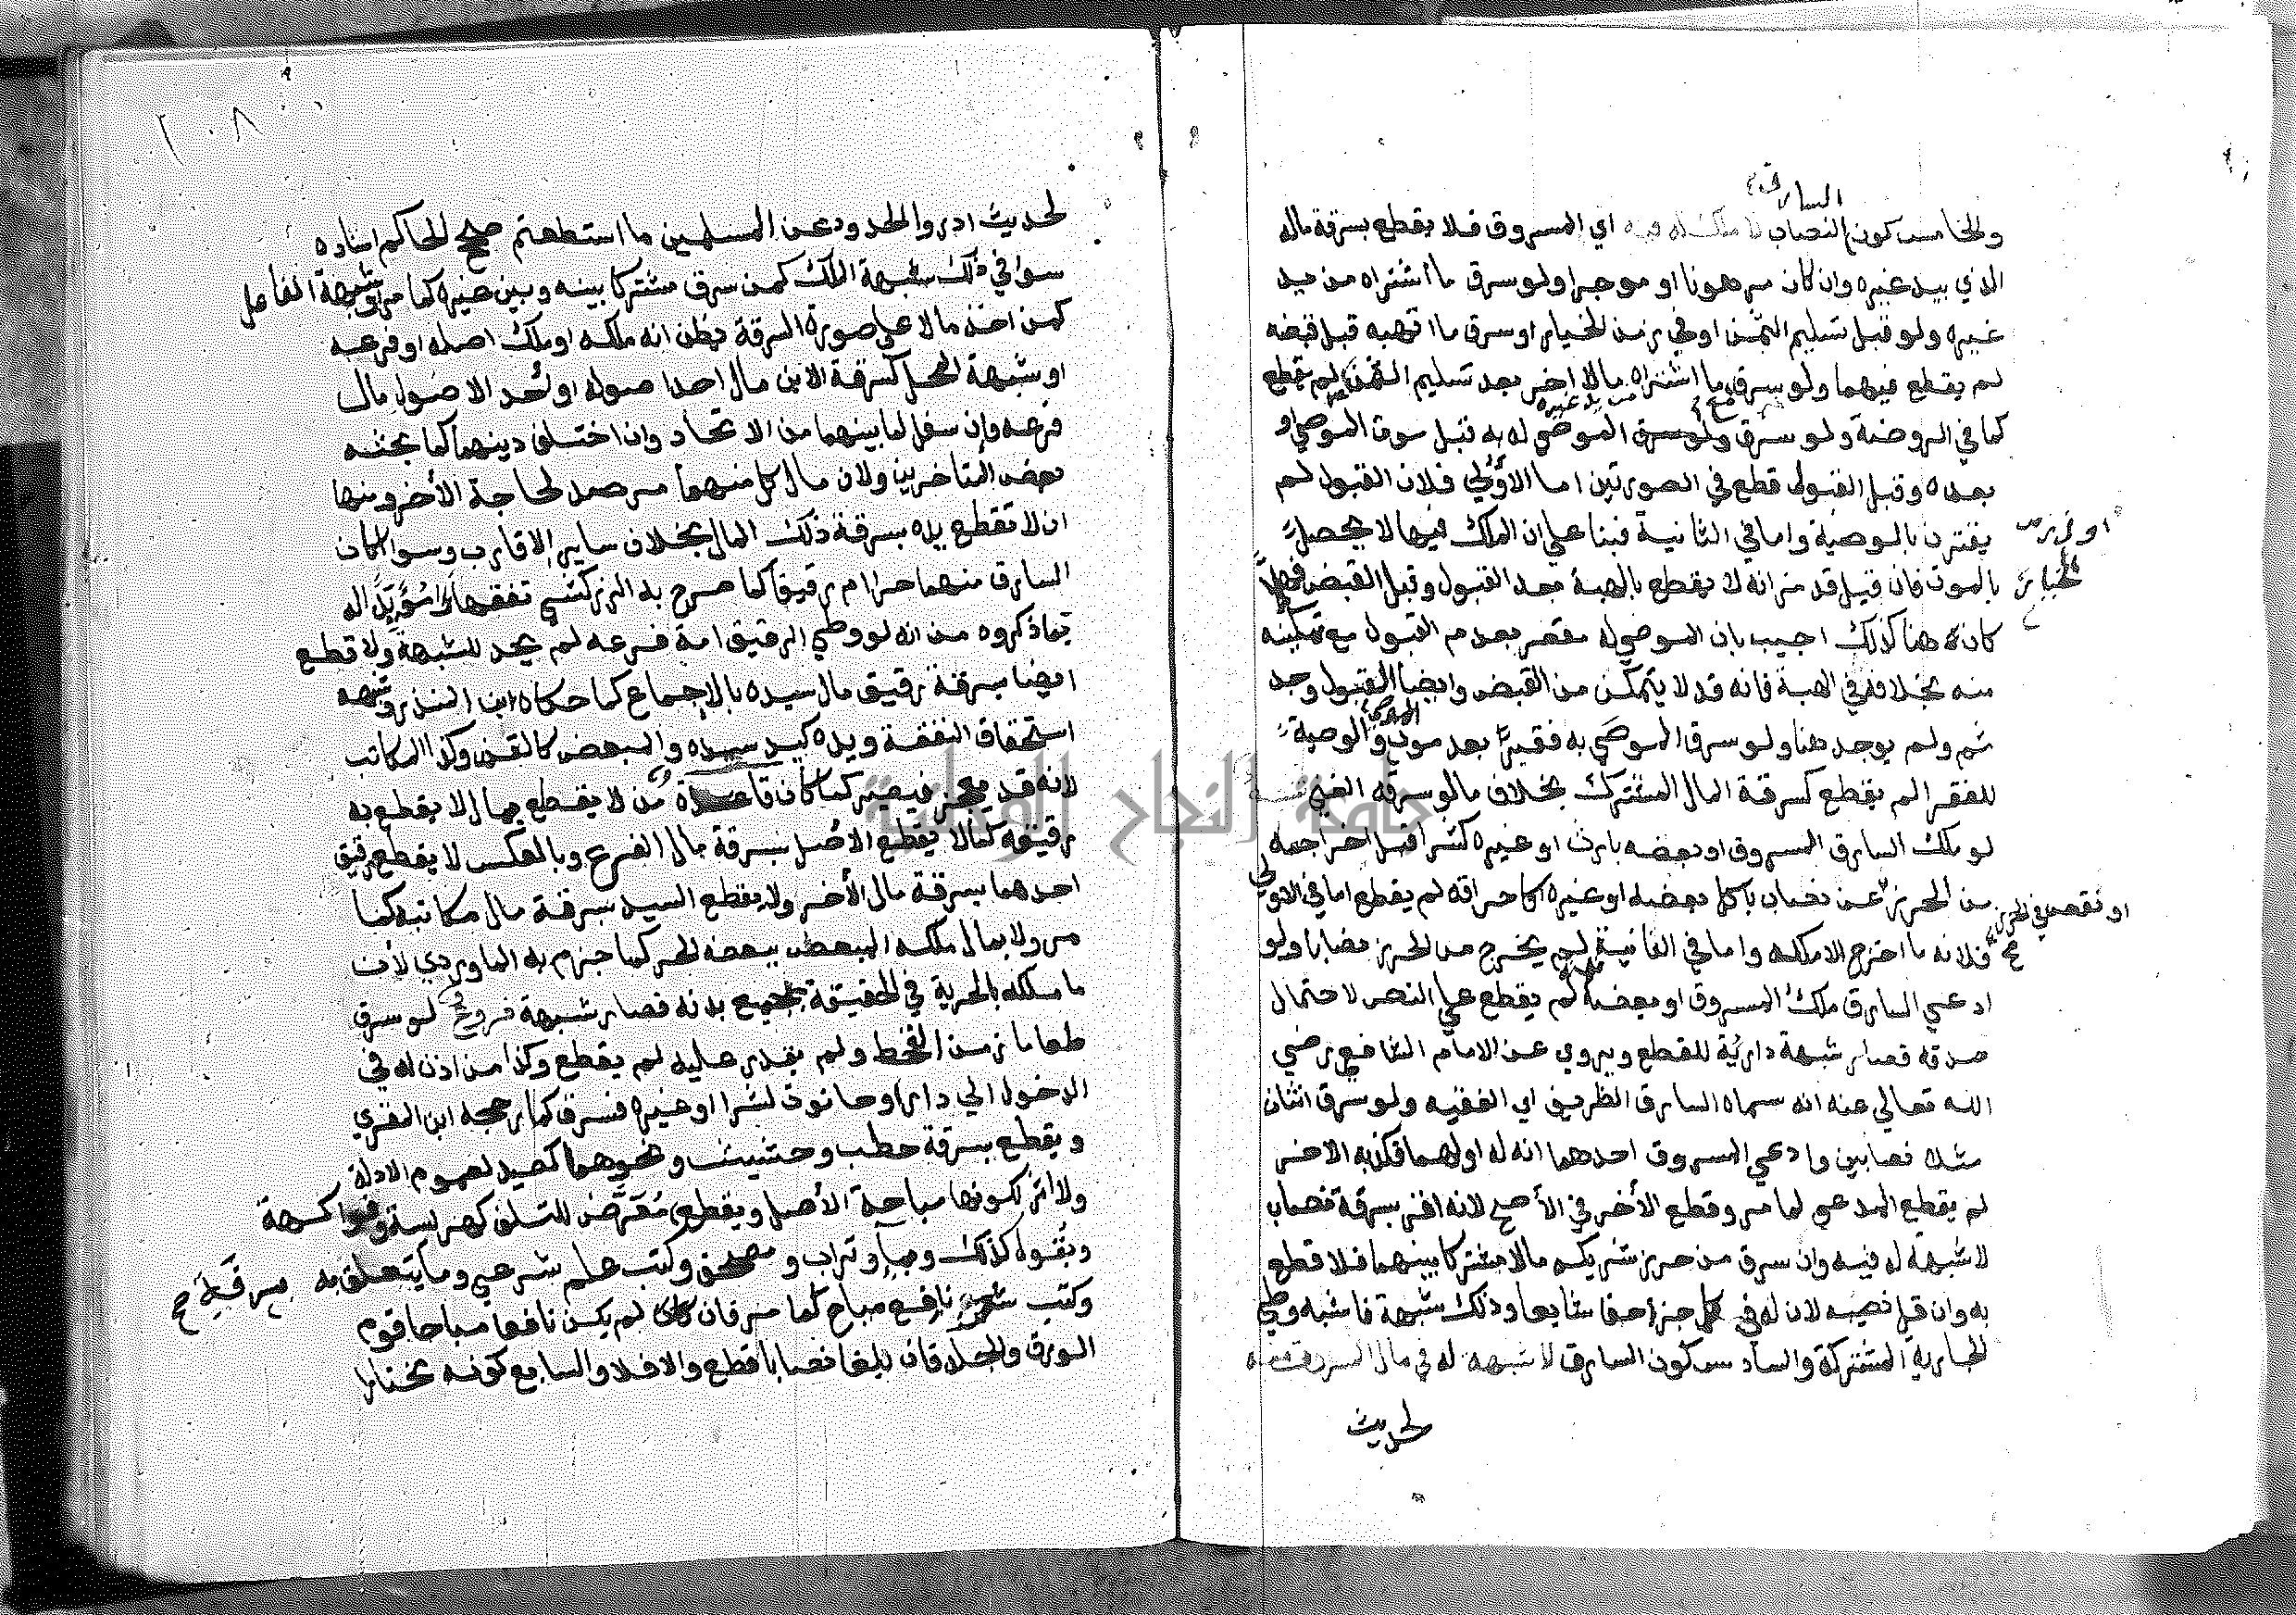 السارق
والخامس كون النصاب لا ملك له فيه اي المسروق فلا يقطع بسرقة ماله
الذي بيد غيره وان كان مرهونا او موجرا ولو سرق ما اشتراه من يد
غيره ولو قبل تسليم الثمن او في زمن الخيار او سرق ما اتهبه قبل قبضه
لم يقطع فيهما ولو سرق مع ما اشتراه مالا اخر بعد تسليم الثمن لم يقطع
من يد غيره
كما في الروضة ولو سرق الموصي له به قبل موت الموصي او
بعده وقبل القبول قطع في الصورتين اما الاولي فلان القبول لم
يقترن بالوصية واما في الثانية فبنا علي ان الملك فيها لا يحصل
او في زمن
الخيار
بالموت فان قيل قد مر انه لا يقطع بالهبة بعد القبول وقبل القبض فهلا
كان هنا كذلك اجيب بان الموصي له مقصر بعدم القبول مع تمكنه
منه بخلافه في الهبة فانه قد لا يتمكن من القبض وايضا القبول وجد
ثم ولم يوجد هنا ولو سرق الموصي به فقير بعد موت الموصي والوصية
للفقرا لم يقطع كسرقة المال المشترك بخلاف ما لو سرقه الغني
لو ملك السارق المسروق او بعضه بارث او غيره كشرا قبل اخراجه
من الحرز او نقص في الحرز عن نصاب باكل بعضه او غيره كاحراقه لم يقطع اما في الاولي
فلانه ما اخرج الا ملكه واما في الثانية فلانه لم يخرج من الحرز نصابا ولو
ادعي السارق ملك المسروق او بعضه لم يقطع علي النص لاحتمال
صدقه فصار شبهة دارئة للقطع ويروي عن الامام الشافعي رضي
الله تعالي عنه انه سماه السارق الظريف اي الفقيه ولو سرق اثنان
مثلا نصابين وادعي المسروق احدهما انه له او لهما فكذبه الاخر
لم يقطع المدعي لما مر وقطع الاخر في الاصح لانه اقر بسرقة نصاب
لا شبهة له فيه وان سرق من حرز شريكه مالا مشتركا بينهما فلا قطع
به وان قل نصيبه لان له في كل جزء حقا شايعا وذلك شبهة فاشبه وطي
الجارية المشتركة والسادس كون السارق لا شبهة له في مال المسروق منه
لحديث
٢٠٨
لحديث ادروا الحدود عن المسلمين ما استطعتم صحح الحاكم اسناده
سوا في ذلك شبهة الملك كمن سرق مشتركا بينه وبين غيره كما مر وشبهة الفاعل
كمن اخذ مالا علي صورة السرقة يظن انه ملكه او ملك اصله او فرعه
او شبهة المحل كسرقة الابن مال احد اصوله او احد الاصول مال
فرعه وان سفل لما بينهما من الاتحاد وان اختلف دينهما كما بحثه
بعض المتاخرين ولان مال كل منهما مرصد لحاجة الاخر ومنها
ان لا تقطع يده بسرقة ذلك المال بخلاف ساير الاقارب وسوا اكان
السارق منهما حرا ام رقيقا كما صرح به الزركشي تفقها مؤيدا له
بما ذكروه من انه لو وطي الرقيق امة فرعه لم يحد للشبهة ولا قطع
ايضا بسرقة رقيق مال سيده بالاجماع كما حكاه ابن المنذر وشبهة
استحقاق النفقة ويده كيد سيده والمبعض كالقن وكذا المكاتب
لانه قد يعجز فيصير كما كان قاعدة من لا يقطع بمال لا يقطع به
رقيقه كما لا يقطع الاصل بسرقة مال الفرع وبالعكس لا يقطع رقيق
احدهما بسرقة مال الاخر ولا يقطع السيد بسرقة مال مكاتبه كما
مر ولا بمال ملكه المبعض ببعضه الحر كما جزم به الماوردي لان
ما ملكه بالحرية في الحقيقة بجميع بدنه فصار شبهة فروع لو سرق
طعاما زمن القحط ولم يقدر عليه لم يقطع وكذا من اذن له في
الدخول الي دار او حانوت لشرا او غيره فسرق كما رجحه ابن المقري
ويقطع بسرقة حطب وحشيش ونحوهما كصيد لعموم الادلة
ولا اثر لكونها مباحة الاصل ويقطع بسرقة معرض للتلف كهريسة وفواكهة
وبقول كذلك وبماء وتراب ومصحف وكتب علم شرعي وما يتعلق به
وكتب شعر نافع مباح كما مر فان لم يكن نافعا مباحا قوم
الورق والجلد فان بلغا نصابا قطع والا فلا والسابع كونه مختارا